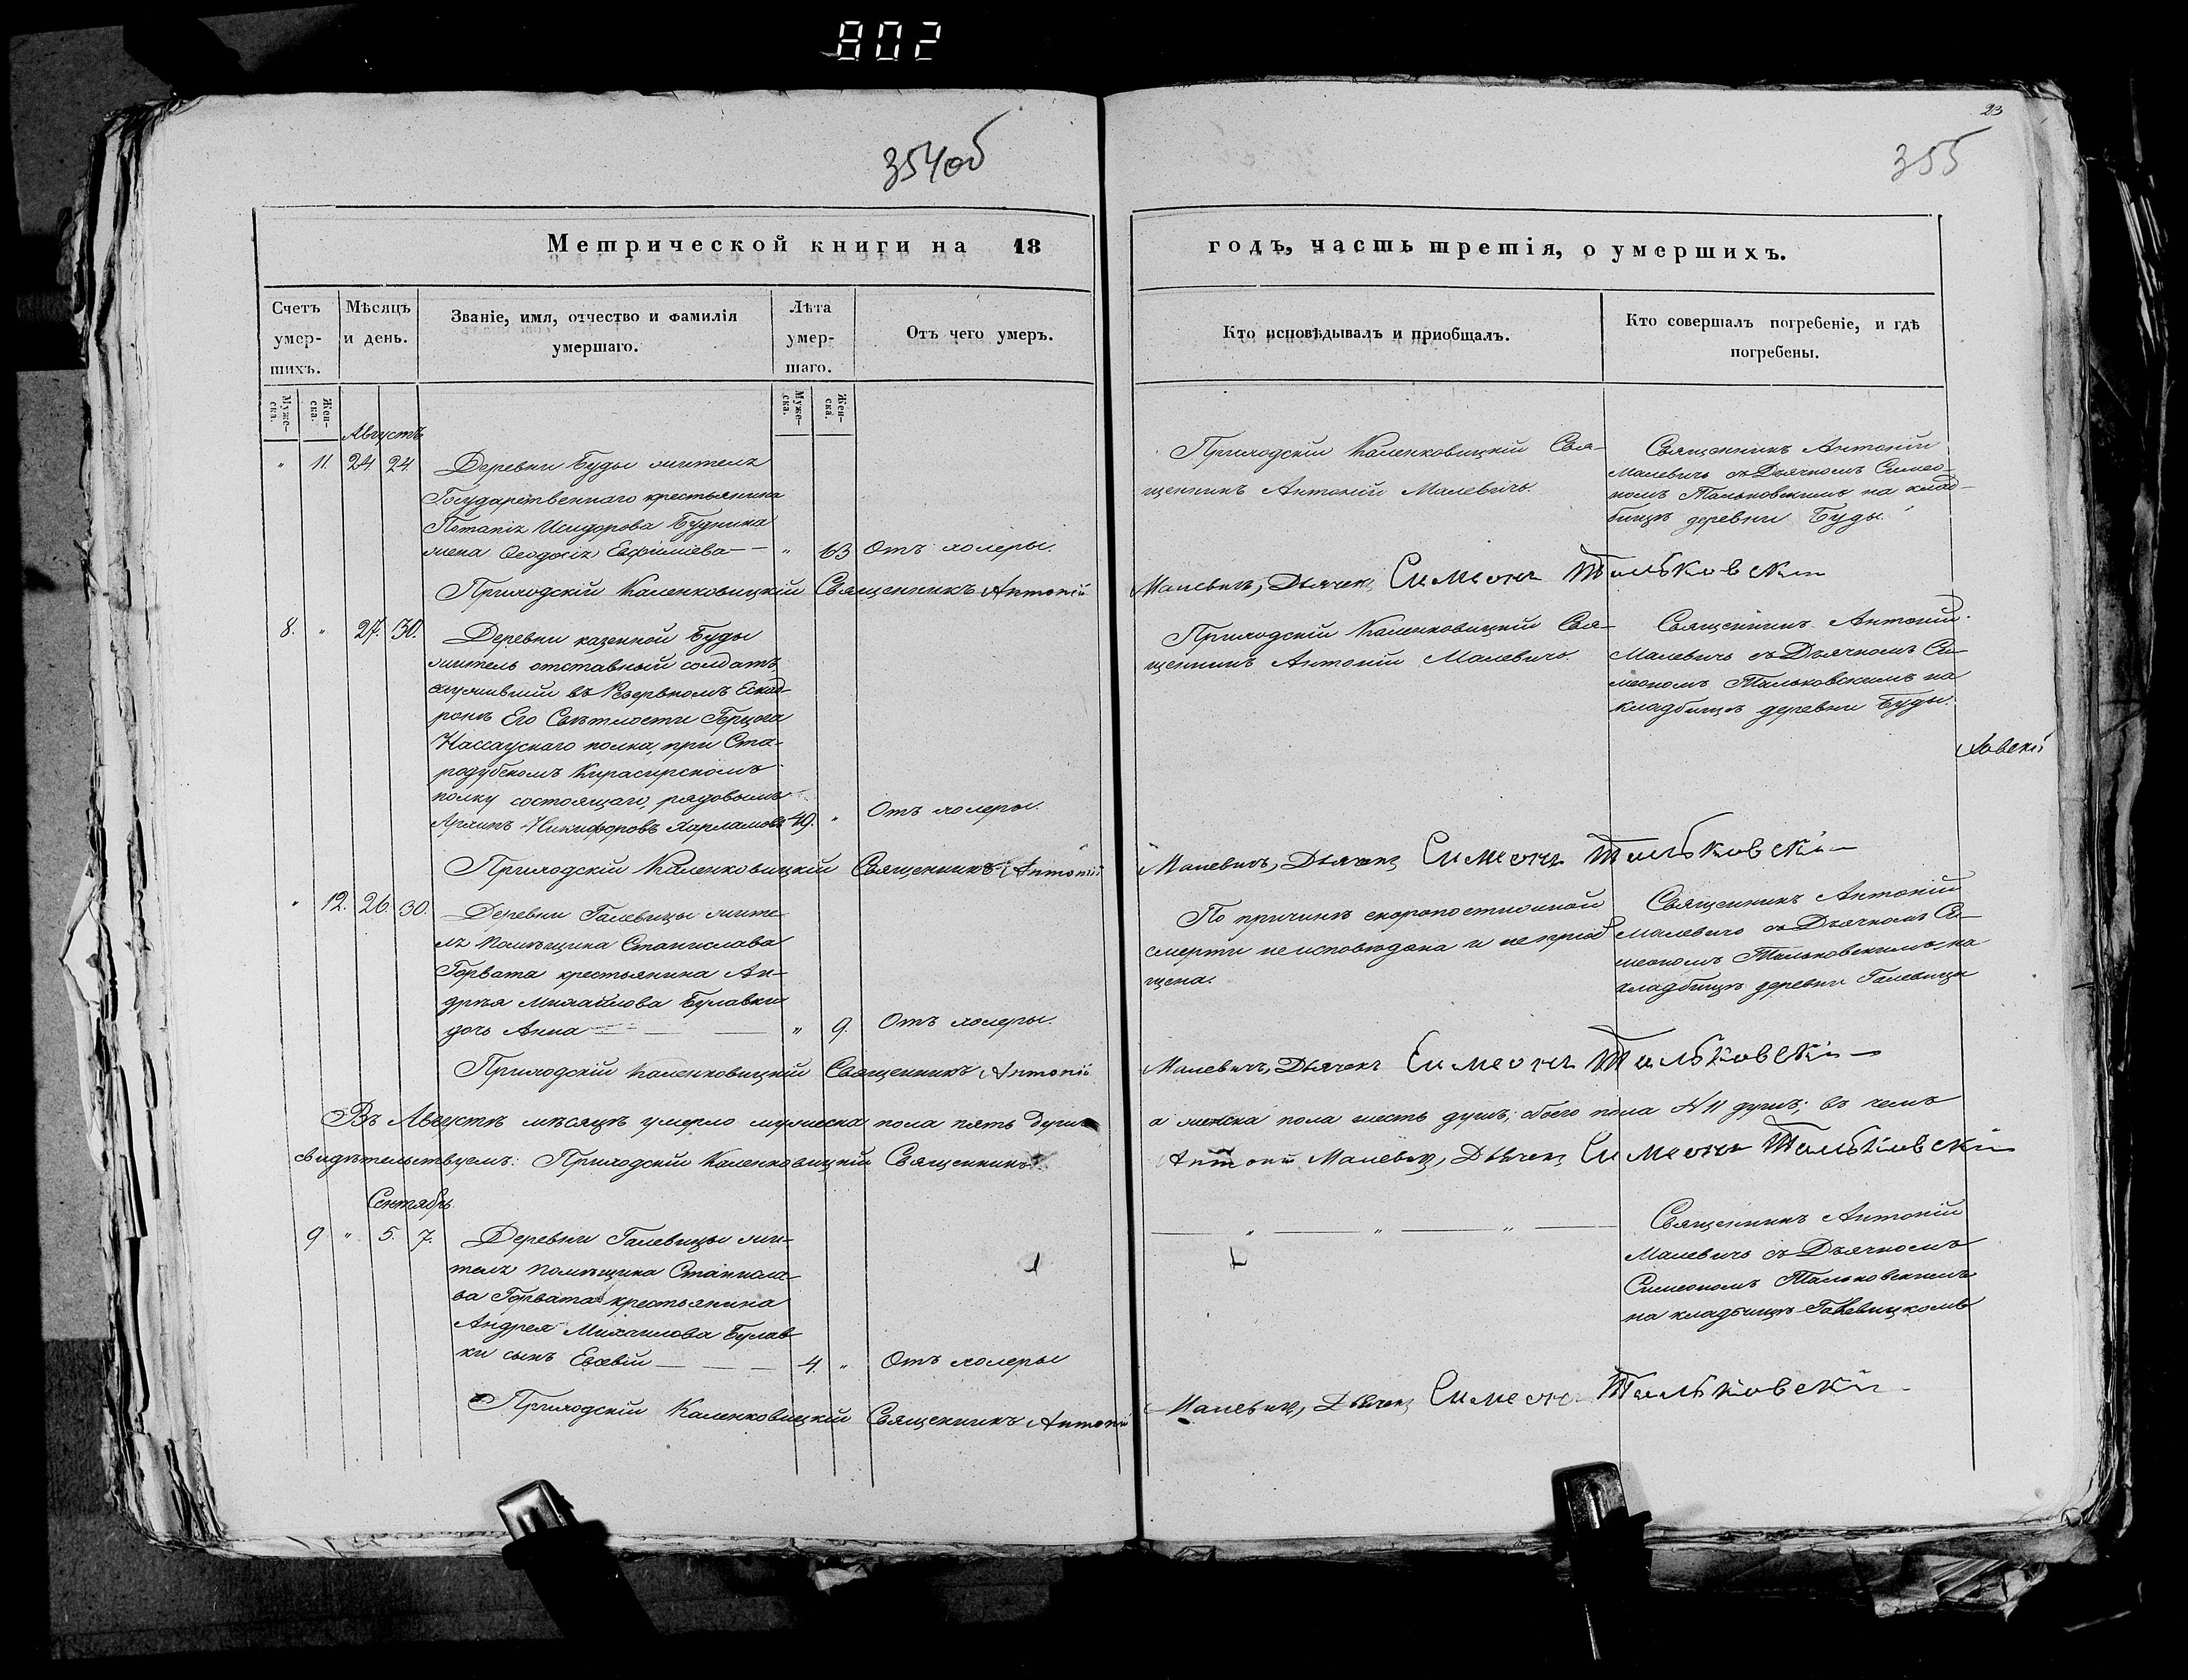 802
354об
23
355
Метрической книги на 18 годъ, часть третія, о умершихъ.
Счетъ умер-шихъ.
Мѣсяцъ и день.
Званіе, имя, отчество и фамилія умершаго.
Лѣта умер-шаго.
Отъ чего умеръ.
Кто исповѣдывалъ и приобщалъ.
Кто совершалъ погребеніе, и гдѣ погребены.
Муже-ска.
Жен-ска.
Муже-ска.
Жен-ска.
Августъ
" 11. 24 24.
Деревни Буды жителя
Государственнаго крестьянина
Потапія Исидорова Будника
жена Ѳеодосія Евфиміева — " 63 Отъ холеры.
Приходскій Каленковицкій Свя-
щенникъ Антоній Малевичъ.
Священникъ Антоній
Малевичъ съ Дьячкомъ Симео-
номъ Тальковскимъ на клад-
бищѣ деревни Буды.
Приходскій Каленковицкій Священникъ Антоній Малевичъ, Дьячекъ Симеонъ Тальковскій
8. " 27. 30.
Деревни казенной Буды
житель отставный солдатъ
служившій въ Резервномъ Ескад-
ронѣ Его Свѣтлости Герцога
Нассаускаго полка, при Ста-
родубскомъ Кирасирскомъ
полку состоящаго, рядовымъ
Никифоровъ Харламовъ 49. " Отъ холеры.
Приходскій Каленковицкій Свя-
щенникъ Антоній Малевичъ.
Священникъ Антоній
Малевичъ съ Дьячкомъ Си-
меономъ Тальковскимъ на
кладбищѣ деревни Буды.
Приходскій Каленковицкій Священникъ Антоній Малевичъ, Дьячекъ Симеонъ Тальковскій
" 12. 26. 30.
Деревни Галевицы жите-
ля помѣщика Станислава
Горвата крестьянина Ан-
дрея Михайлова Булавки
дочь Анна — " 9. Отъ холеры.
По причинѣ скоропостижной
смерти неисповѣдана и неприоб
щена.
Священникъ Антоній
Малевичъ съ Дьячкомъ Си-
меономъ Тальковскимъ на
кладбищѣ деревни Галевицы
Приходскій Каленковицкій Священникъ Антоній Малевичъ, Дьячекъ Симеонъ Тальковскій
Въ Августѣ мѣсяцѣ умерло мужеска пола пять душъ а женска пола шесть душъ, обоего пола № 11 душъ; въ чемъ
свидѣтельствуемъ: Приходскій Каленковицкій Священникъ Антоній Малевичъ, Дьячекъ Симеонъ Тальковскій
Сентябрь
9 " 5. 7.
Деревни Галевицы жи-
теля помѣщика Станисла-
ва Горвата крестьянина
Андрея Михайлова Булав-
ки сынъ Евсевій — 4. " Отъ холеры
" — " — " —
Священникъ Антоній
Малевичъ съ Дьячкомъ
Симеономъ Тальковскимъ
на кладбищѣ Галевицкомъ
Приходскій Каленковицкій Священникъ Антоній Малевичъ, Дьячекъ Симеонъ Тальковскій